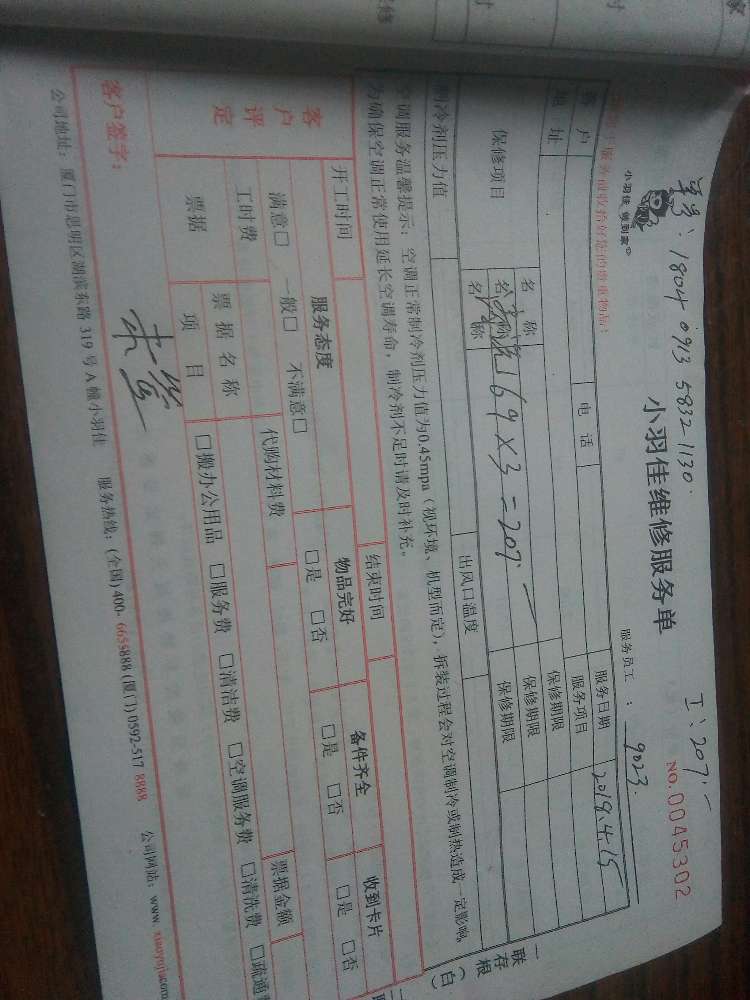 单号: 1804 0913 5832 1130.
工: 207.-
小羽佳 做到家
小羽佳维修服务单
NO. 0045302
服务员工: 9023.
客户
电话
服务日期 2019.4.15
地址
服务项目
保修项目
名称
保修期限
名称 69×3=207.-
保修期限
名称
保修期限
制冷剂压力值
出风口温度
空调服务温馨提示: 空调正常制冷剂压力值为0.45mpa (视环境、机型而定), 拆装过程会对空调制冷或制热造成一定影响,
为确保空调正常使用延长空调寿命, 制冷剂不足时请及时补充。
一联存根(白)
客户评定
开工时间
结束时间
服务态度
物品完好
备件齐全
收到卡片
满意□ 一般□ 不满意□
□是 □否
□是 □否
□是 □否
工时费
代购材料费
票据金额
票据
票据名称
项目
□搬办公用品 □服务费 □清洁费 □空调服务费 □清洗费 □疏通
客户签字:
公司地址: 厦门市思明区湖滨东路 319 号 A 幢小羽佳 服务热线: (全国) 400-6655888 (厦门) 0592-517 8888 公司网站: www.xiaoyujia.com